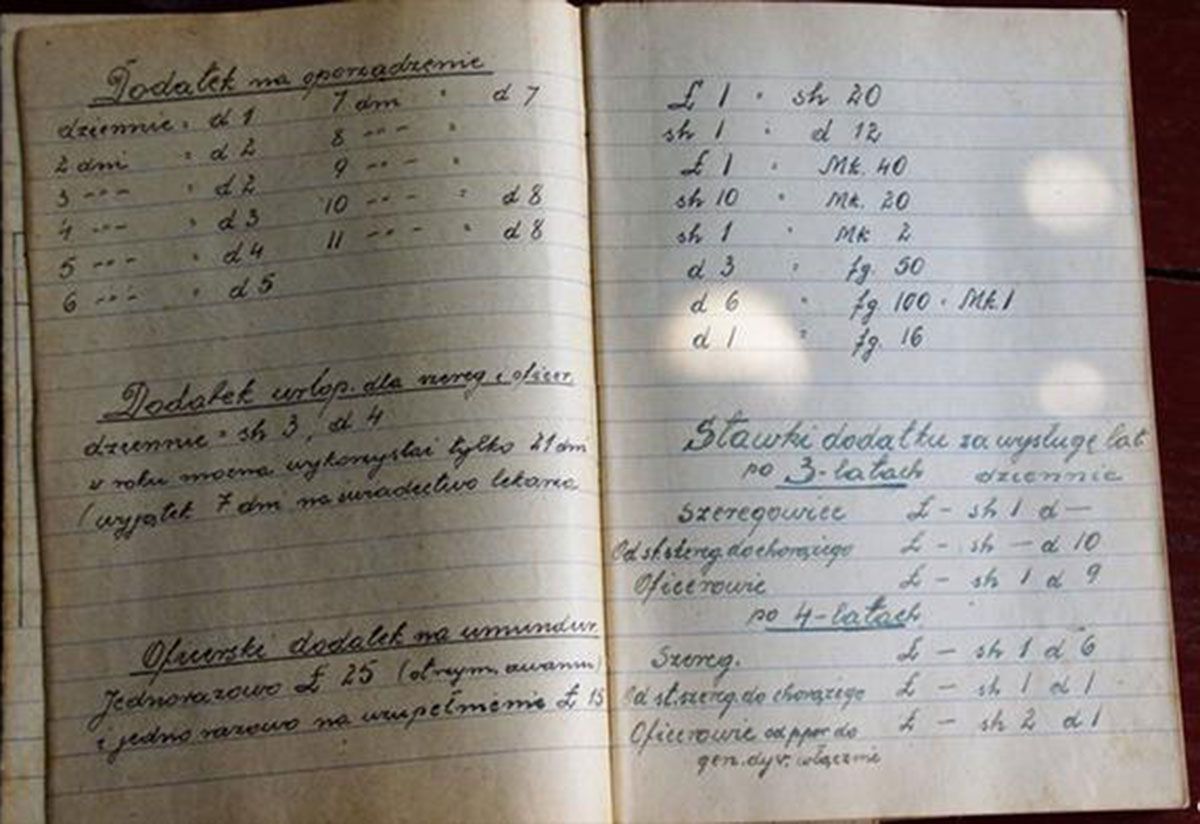 Dodatek na oporządzenie
dziennie = d 1 7 dni = d 7
2 dni = d 2 8 -"- =
3 -"- = d 2 9 -"- =
4 -"- = d 3 10 -"- = d 8
5 -"- = d 4 11 -"- = d 8
6 -"- = d 5
Dodatek urlop. dla szereg i oficer.
dziennie = sh 3, d 4
w roku można wykorzystać tylko 21 dni
(wyjątek 7 dni na świadectwo lekarza
Oficerski dodatek na umundur.
Jednorazowo £ 25 (otrzym. awansu)
i jednorazowo na uzupełnienie £ 15
£ 1 = sh 20
sh 1 = d 12
£ 1 = Mk. 40
sh 10 = Mk. 20
sh 1 = Mk 2
d 3 = fg. 50
d 6 = fg 100 = Mk 1
d 1 = fg. 16
Stawki dodatku za wysługę lat
po 3-latach dziennie
Szeregowiec £ - sh 1 d —
Od st.szereg. do chorążego £ - sh — d 10
Oficerowie £ - sh 1 d 9
po 4-latach
Szereg. £ - sh 1 d 6
Od st.szereg. do chorążego £ - sh 1 d 1
Oficerowie od ppor do £ - sh 2 d 1
gen. dyw. włącznie